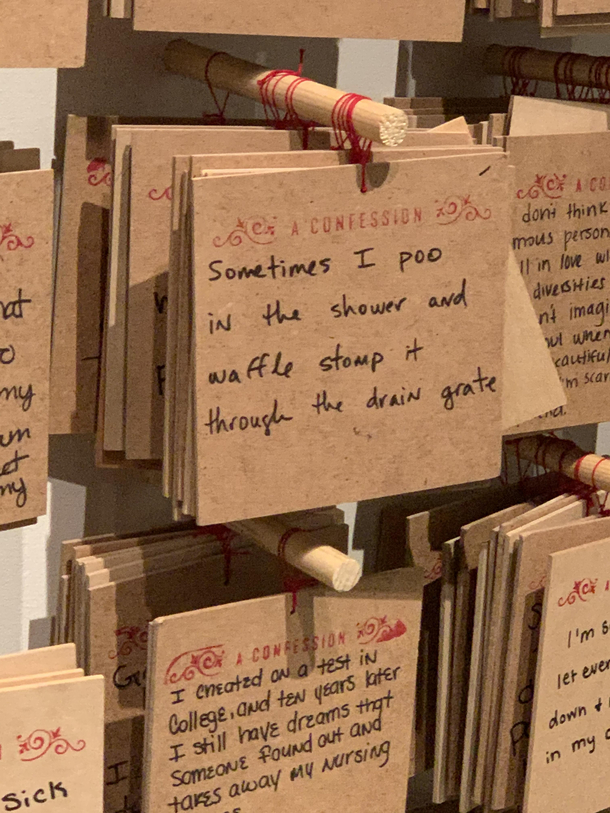 A CONFESSION
Sometimes I poo
in the shower and
waffle stomp it
through the drain grate
A CO
don't think
mous person
ll in love wi
diversities
n't imagi
ul when
eautiful
I'm scar
A CONFESSION
I cheated on a test in
College, and ten years later
I still have dreams that
someone found out and
takes away my nursing
hat
my
um
et
my
sick
I'm s
let ever
down &
in my